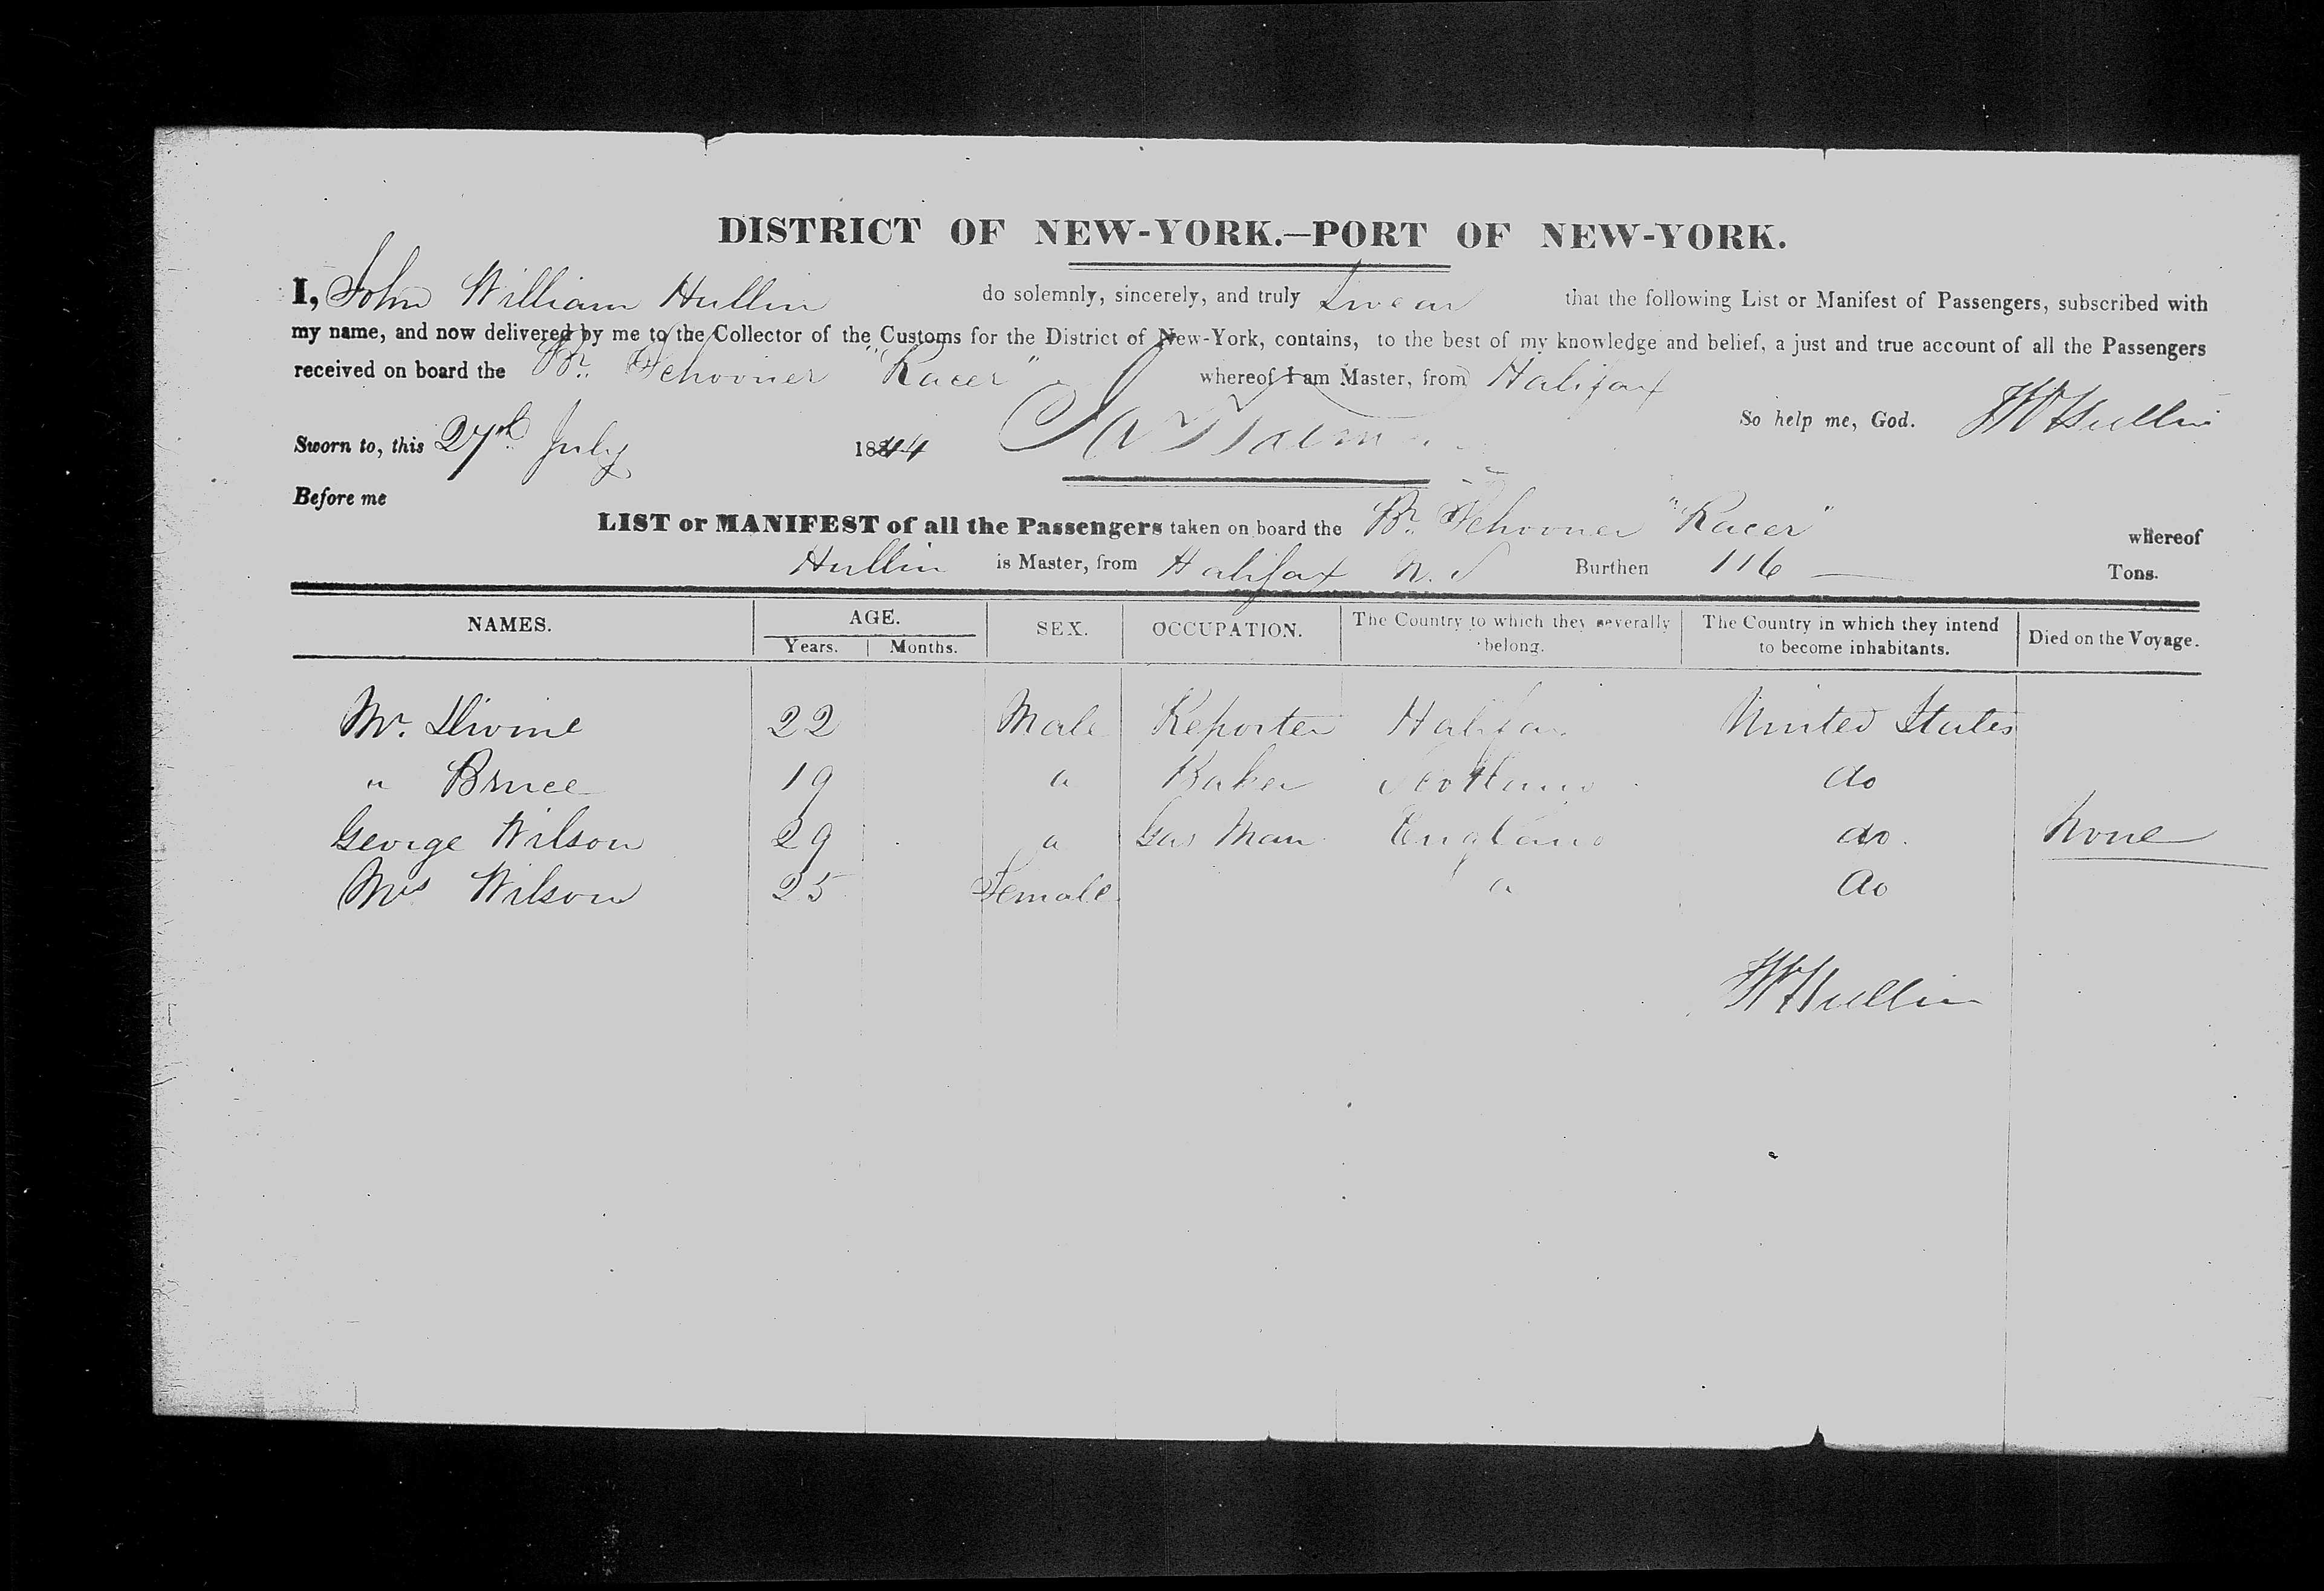 DISTRICT OF NEW-YORK.—PORT OF NEW-YORK.
I, John William Hullin do solemnly, sincerely, and truly Swear that the following List or Manifest of Passengers, subscribed with
my name, and now delivered by me to the Collector of the Customs for the District of New-York, contains, to the best of my knowledge and belief, a just and true account of all the Passengers
received on board the Br. Schooner "Racer" whereof I am Master, from Halifax
So help me, God. JW Hullin
Sworn to, this 27th July 1844
Before me
LIST or MANIFEST of all the Passengers taken on board the Br. Schooner "Racer" whereof
Hullin is Master, from Halifax N.S Burthen 116 — Tons.
NAMES. AGE. SEX. OCCUPATION. The Country to which they severally belong. The Country in which they intend to become inhabitants. Died on the Voyage.
Years. Months.
Mr. Divine 22 Male Reporter Halifax United States
" Bruce 19 " Baker Scotland do
George Wilson 29 " Gas Man England do. None
Mrs Wilson 25 Female " Do
JW Hullin